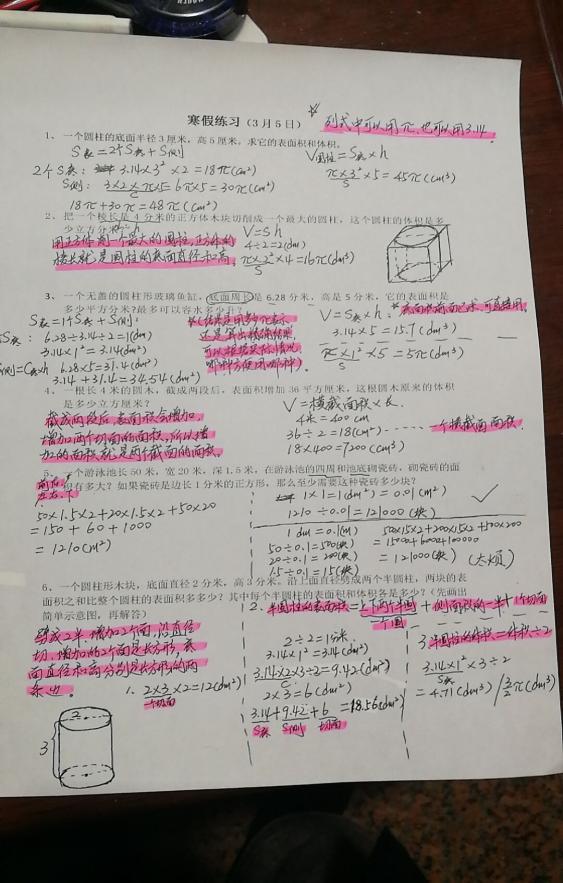 寒假练习（3月5日）
☆ 列式中可以用π,也可以用3.14.
1、一个圆柱的底面半径3厘米，高5厘米，求它的表面积和体积。
S表=2个S底+S侧
V圆柱=S底×h
2个S底: 3.14×3²×2=18π(cm²)
π×3²×5=45π(cm³)
S
S侧: 3×2×π×5=6π×5=30π(cm²)
C
18π+30π=48π(cm²)
2、把一个棱长是4分米的正方体木块切削成一个最大的圆柱，这个圆柱的体积是多
少立方分米？
V=Sh
用正方体削一个最大的圆柱,正方体的
棱长就是圆柱的底面直径和高.
4÷2=2(dm)
π×2²×4=16π(dm³)
S
3、一个无盖的圆柱形玻璃鱼缸，底面周长是6.28分米，高是5分米，它的表面积是
多少平方分米？最多可以容水多少升？
S表=1个S底+S侧:
V=S底×h
S底: 6.28÷3.14÷2=1(dm)
3.14×1²=3.14(dm²)
S侧=C底×h 6.28×5=31.4(dm²)
3.14+31.4=34.54(dm²)
3.14×5=15.7(dm³)
π×1²×5=5π(dm³)
S
4、一根长4米的圆木，截成两段后，表面积增加36平方厘米，这根圆木原来的体积
是多少立方厘米？
截成两段后,表面积会增加,
增加两个切面的面积,所以增
加的面积就是两个截面的面积.
V=横截面积×长
4米=400cm
36÷2=18(cm²)------一个横截面面积.
18×400=7200(cm³)
5、一个游泳池长50米，宽20米，深1.5米，在游泳池的四周和池底砌瓷砖，砌瓷砖的面
积有多大？如果瓷砖是边长1分米的正方形，那么至少需要这种瓷砖多少块？
前后.
左右.下
50×1.5×2+20×1.5×2+50×20
=150+60+1000
=1210(m²)
1×1=1(dm²)=0.01(m²)
1210÷0.01=121000(块)
1dm=0.1(m)
50÷0.1=500(块)
20÷0.1=200(块)
1.5÷0.1=15(块)
500×15×2+200×15×2+500×200
=15000+6000+100000
=121000(块) (太烦)
6、一个圆柱形木块，底面直径2分米，高3分米。沿上面直径劈成两个半圆柱，两块的表
面积之和比整个圆柱的表面积多多少？其中每个半圆柱的表面积和体积各是多少？（先画出
简单示意图，再解答）
劈成2半,增加2个面,沿直径
切,增加的2个面是长方形,底
面直径和高分别是长方形的两
条边.
1. 2×3×2=12(dm²)
一个切面
2
3
2. 半圆柱的表面积=上下两个半圆+侧面积的一半+1个切面
一个圆
2÷2=1分米.
3.14×1²=3.14(dm²)
3.14×2×3÷2=9.42(dm²)
C
2×3=6(dm²)
3.14+9.42+6=18.56(dm²)
S底 S侧 切面
3. 半圆柱的体积=体积÷2
3.14×1²×3÷2
S底
=4.71(dm³)/3/2π(dm³)